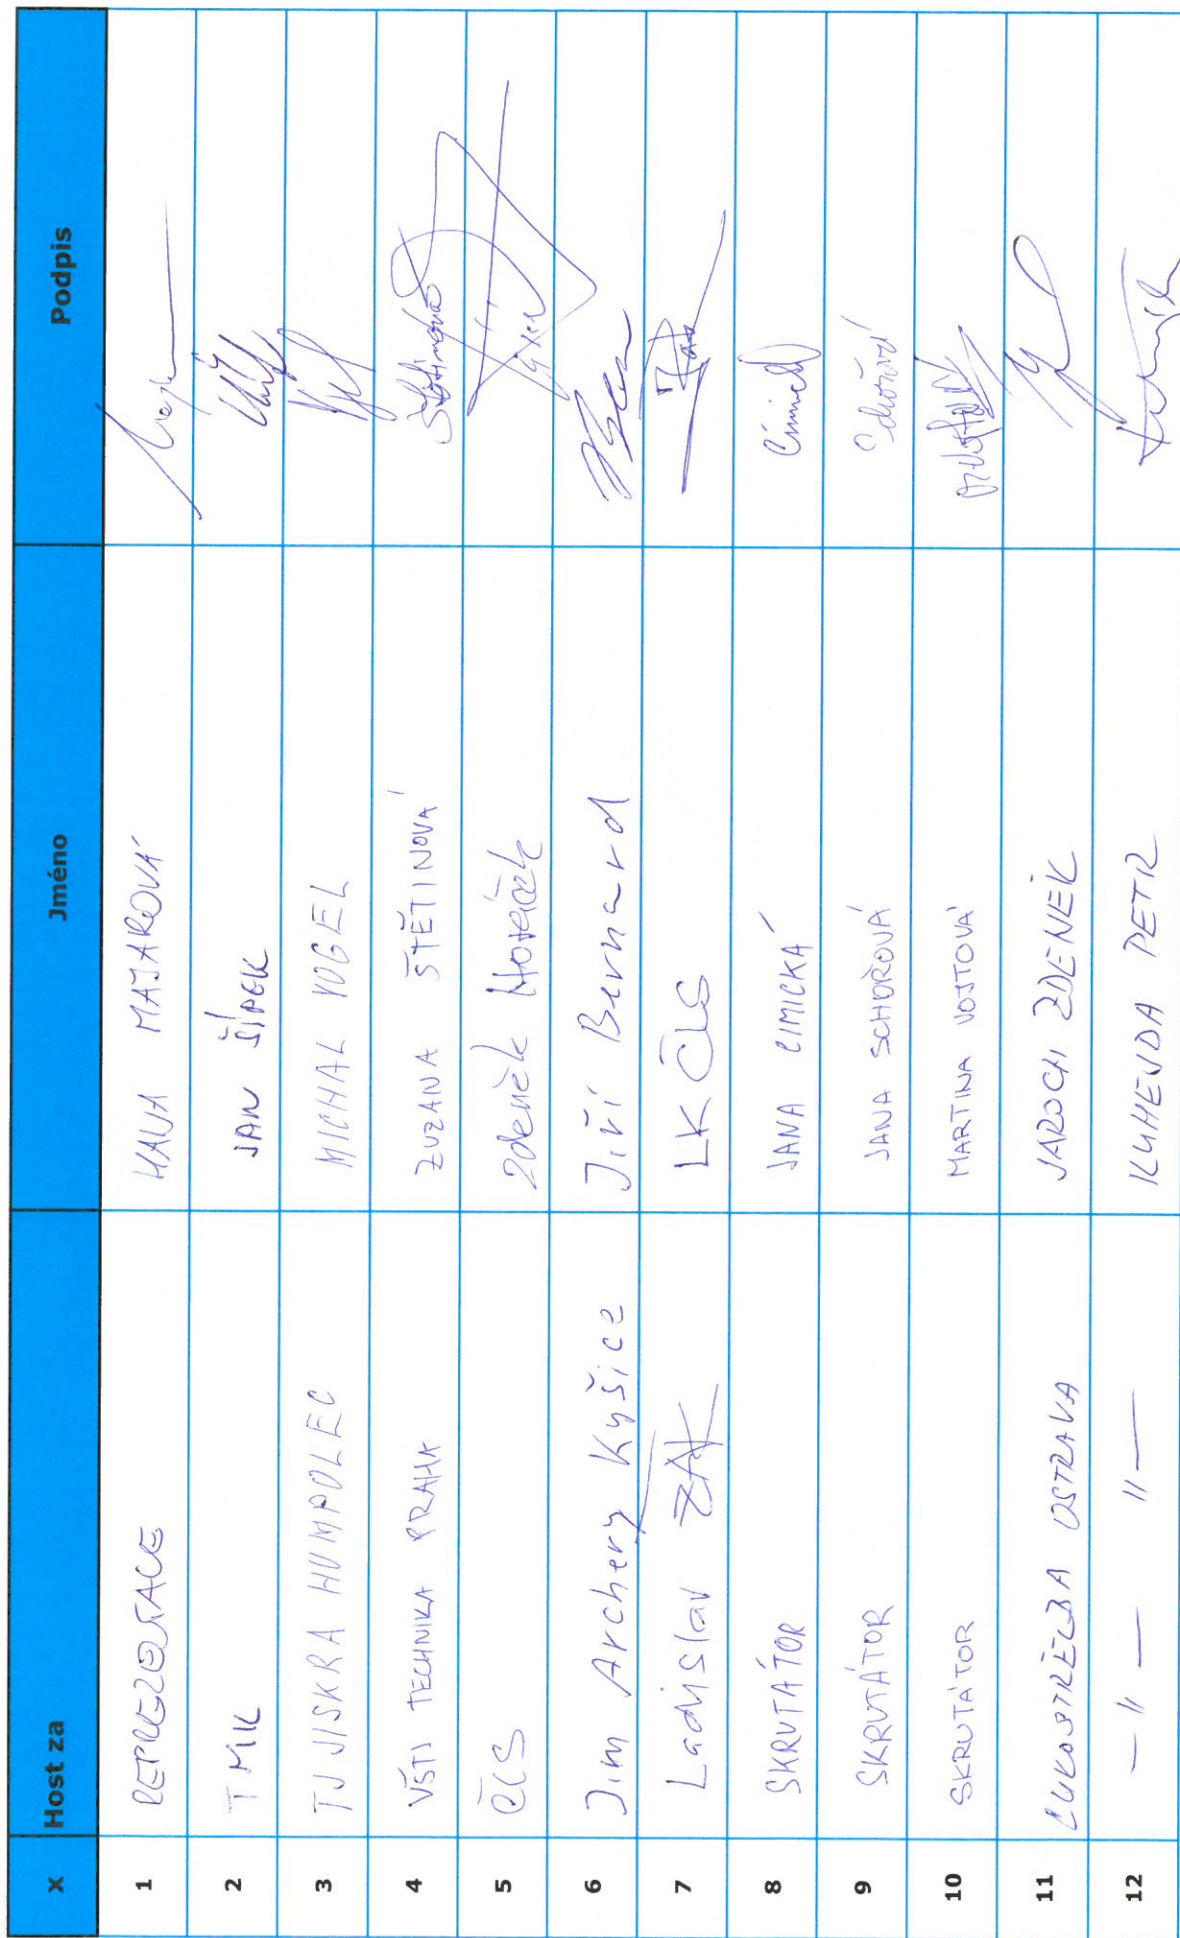 x Host za Jméno Podpis
1 REPREZENTACE HANA MAJAROVÁ
2 TMK JAN ŠÍPEK
3 TJ JISKRA HUMPOLEC MICHAL VOGEL
4 VŠTJ TECHNIKA PRAHA ZUZANA ŠTĚTINOVÁ Štětinová
5 ČLS Zdeněk Horáček
6 Jim Archery Kyšice Jiří Bernard
7 Ladislav ŽÁK LK ČLS Žák
8 SKRUTÁTOR JANA CIMICKÁ
9 SKRUTÁTOR JANA SCHOŘOVÁ
10 SKRUTÁTOR MARTINA VOJTOVÁ
11 LUKOSTŘELBA OSTRAVA JAROCH ZDENĚK
12 — " — " — KUHEJDA PETR